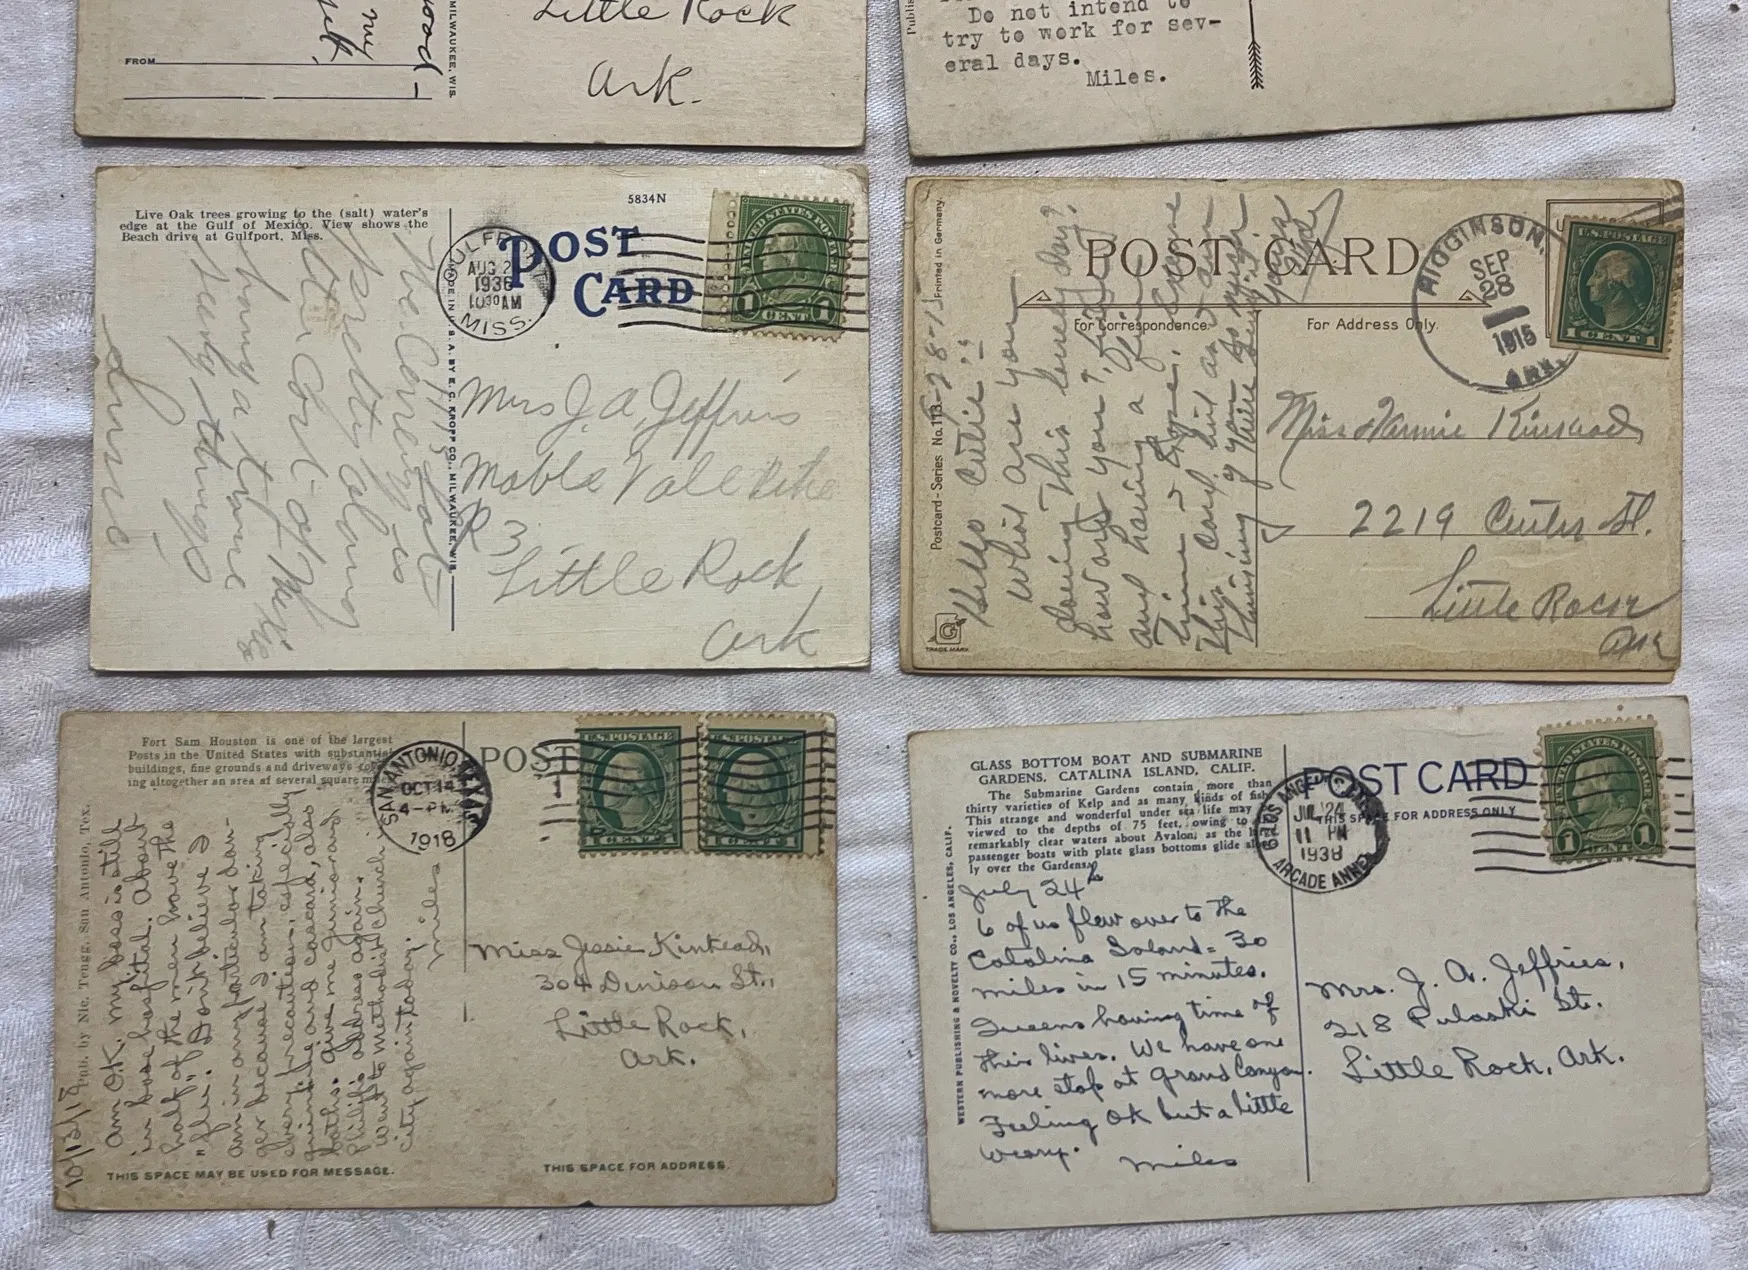 FROM
MILWAUKEE, WIS.
road -
my
Little Rock
Ark.
Publis
Do not intend to
try to work for sev-
eral days.
Miles.
Live Oak trees growing to the (salt) water's
edge at the Gulf of Mexico. View shows the
Beach drive at Gulfport, Miss.
5834N
POST
CARD
GULFPORT
AUG 2
1936
10 30 AM
MISS.
UNITED STATES POSTAGE
1 CENT 1
MADE IN U. S. A. BY E. C. KROPP CO., MILWAUKEE, WIS.
Mrs J. A. Jeffries
Mable Vale Pike
R 3
Little Rock
Ark
having a time
seeing things
Postcard - Series No. 113. Printed in Germany.
TRADE MARK
POST CARD
For Correspondence.
For Address Only.
HIGGINSON,
SEP
28
1915
ARK.
U.S. POSTAGE
1 CENT 1
9-28-15-
Hello Cutie :-
What are you
doing this lonely day?
how are you?
and having a fine
time
this card
thinking of you
Miss Nannie Kinkead
2219 Center St.
Little Rock
Ark
Fort Sam Houston is one of the largest
Posts in the United States with substantial
buildings, fine grounds and driveways cover-
ing altogether an area of several square miles.
Pub. by Nic. Tengg, San Antonio, Tex.
POST
SAN ANTONIO, TEXAS
OCT 14
4 - PM
1918
U.S. POSTAGE
1 CENT 1
U.S. POSTAGE
1 CENT 1
10/13/18
Am O.K. My boss is still
in base hospital. About
half of the men have the
"flu". Don't believe I
am in any particular dan-
ger because I am taking
every precaution, especially
quinine and cascara, also
baths. Give me Junior and
Philip's address again.
Went to Methodist Church in
City again today.
Miles
Miss Jessie Kinkead,
304 Denison St.,
Little Rock,
Ark.
THIS SPACE MAY BE USED FOR MESSAGE.
THIS SPACE FOR ADDRESS.
GLASS BOTTOM BOAT AND SUBMARINE
GARDENS, CATALINA ISLAND, CALIF.
The Submarine Gardens contain more than
thirty varieties of Kelp and as many kinds of fish.
This strange and wonderful under sea life may
viewed to the depths of 75 feet, owing to
remarkably clear waters about Avalon, as the
passenger boats with plate glass bottoms glide
ly over the Gardens.
WESTERN PUBLISHING & NOVELTY CO., LOS ANGELES, CALIF.
POST CARD
THIS SPACE FOR ADDRESS ONLY
LOS ANGELES, CALIF.
JUL 24
11 PM
1938
ARCADE ANNEX
UNITED STATES POSTAGE
1 CENT 1
July 24th
6 of us flew over to the
Catalina Island = 30
miles in 15 minutes.
Queens having time of
this lives. We have one
more stop at Grand Canyon.
Feeling OK but a little
weary.
Miles
Mrs. J. A. Jeffries,
218 Pulaski St.
Little Rock, Ark.